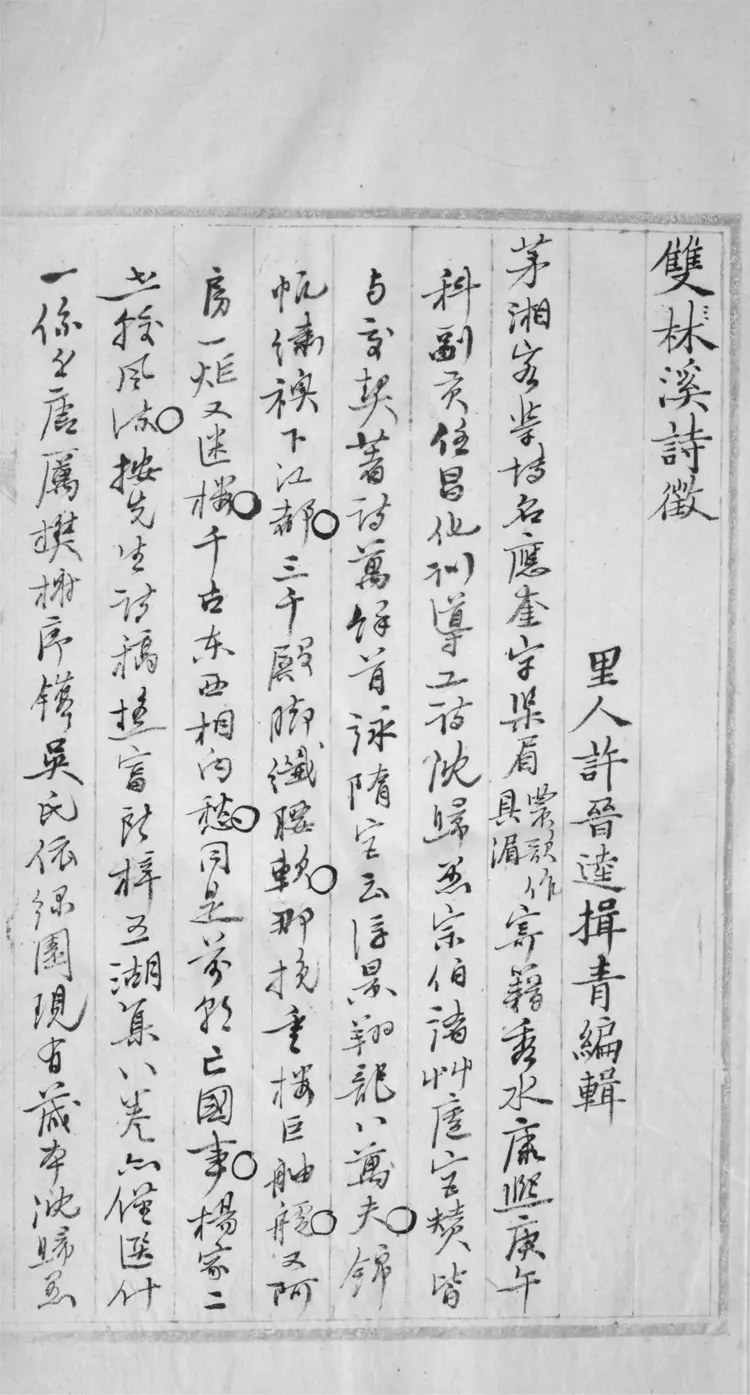 雙林溪詩徵
里人許晉逵揖青編輯
茅湘客掌博名應奎字渠眉農歌作具湄寄籍秀水康熙庚午
科副貢任昌化訓導工詩沈歸愚宗伯諸艸廬宮贊皆
与交契著詩萬餘首詠隋宮云浮景翔龍八萬夫錦
帆繡襖下江都三千殿脚纖腰軟那挽重樓巨舳艫又阿
房一炬又迷樓千古东西相向愁同是前朝亡國事楊家二
世較風流按先生詩稿極富所梓五湖集八卷亦僅区什
一係之唐厲樊榭序鐫吳氏依綠園現有藏本沈歸愚